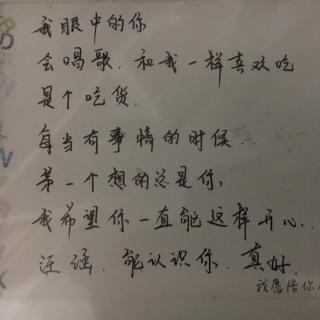 我眼中的你
会唱歌.和我一样喜欢吃
是个吃货.
每当有事情的时候.
第一个想的总是你,
我希望你一直能这样开心...
汪涵.能认识你.真好.
我愿陪你